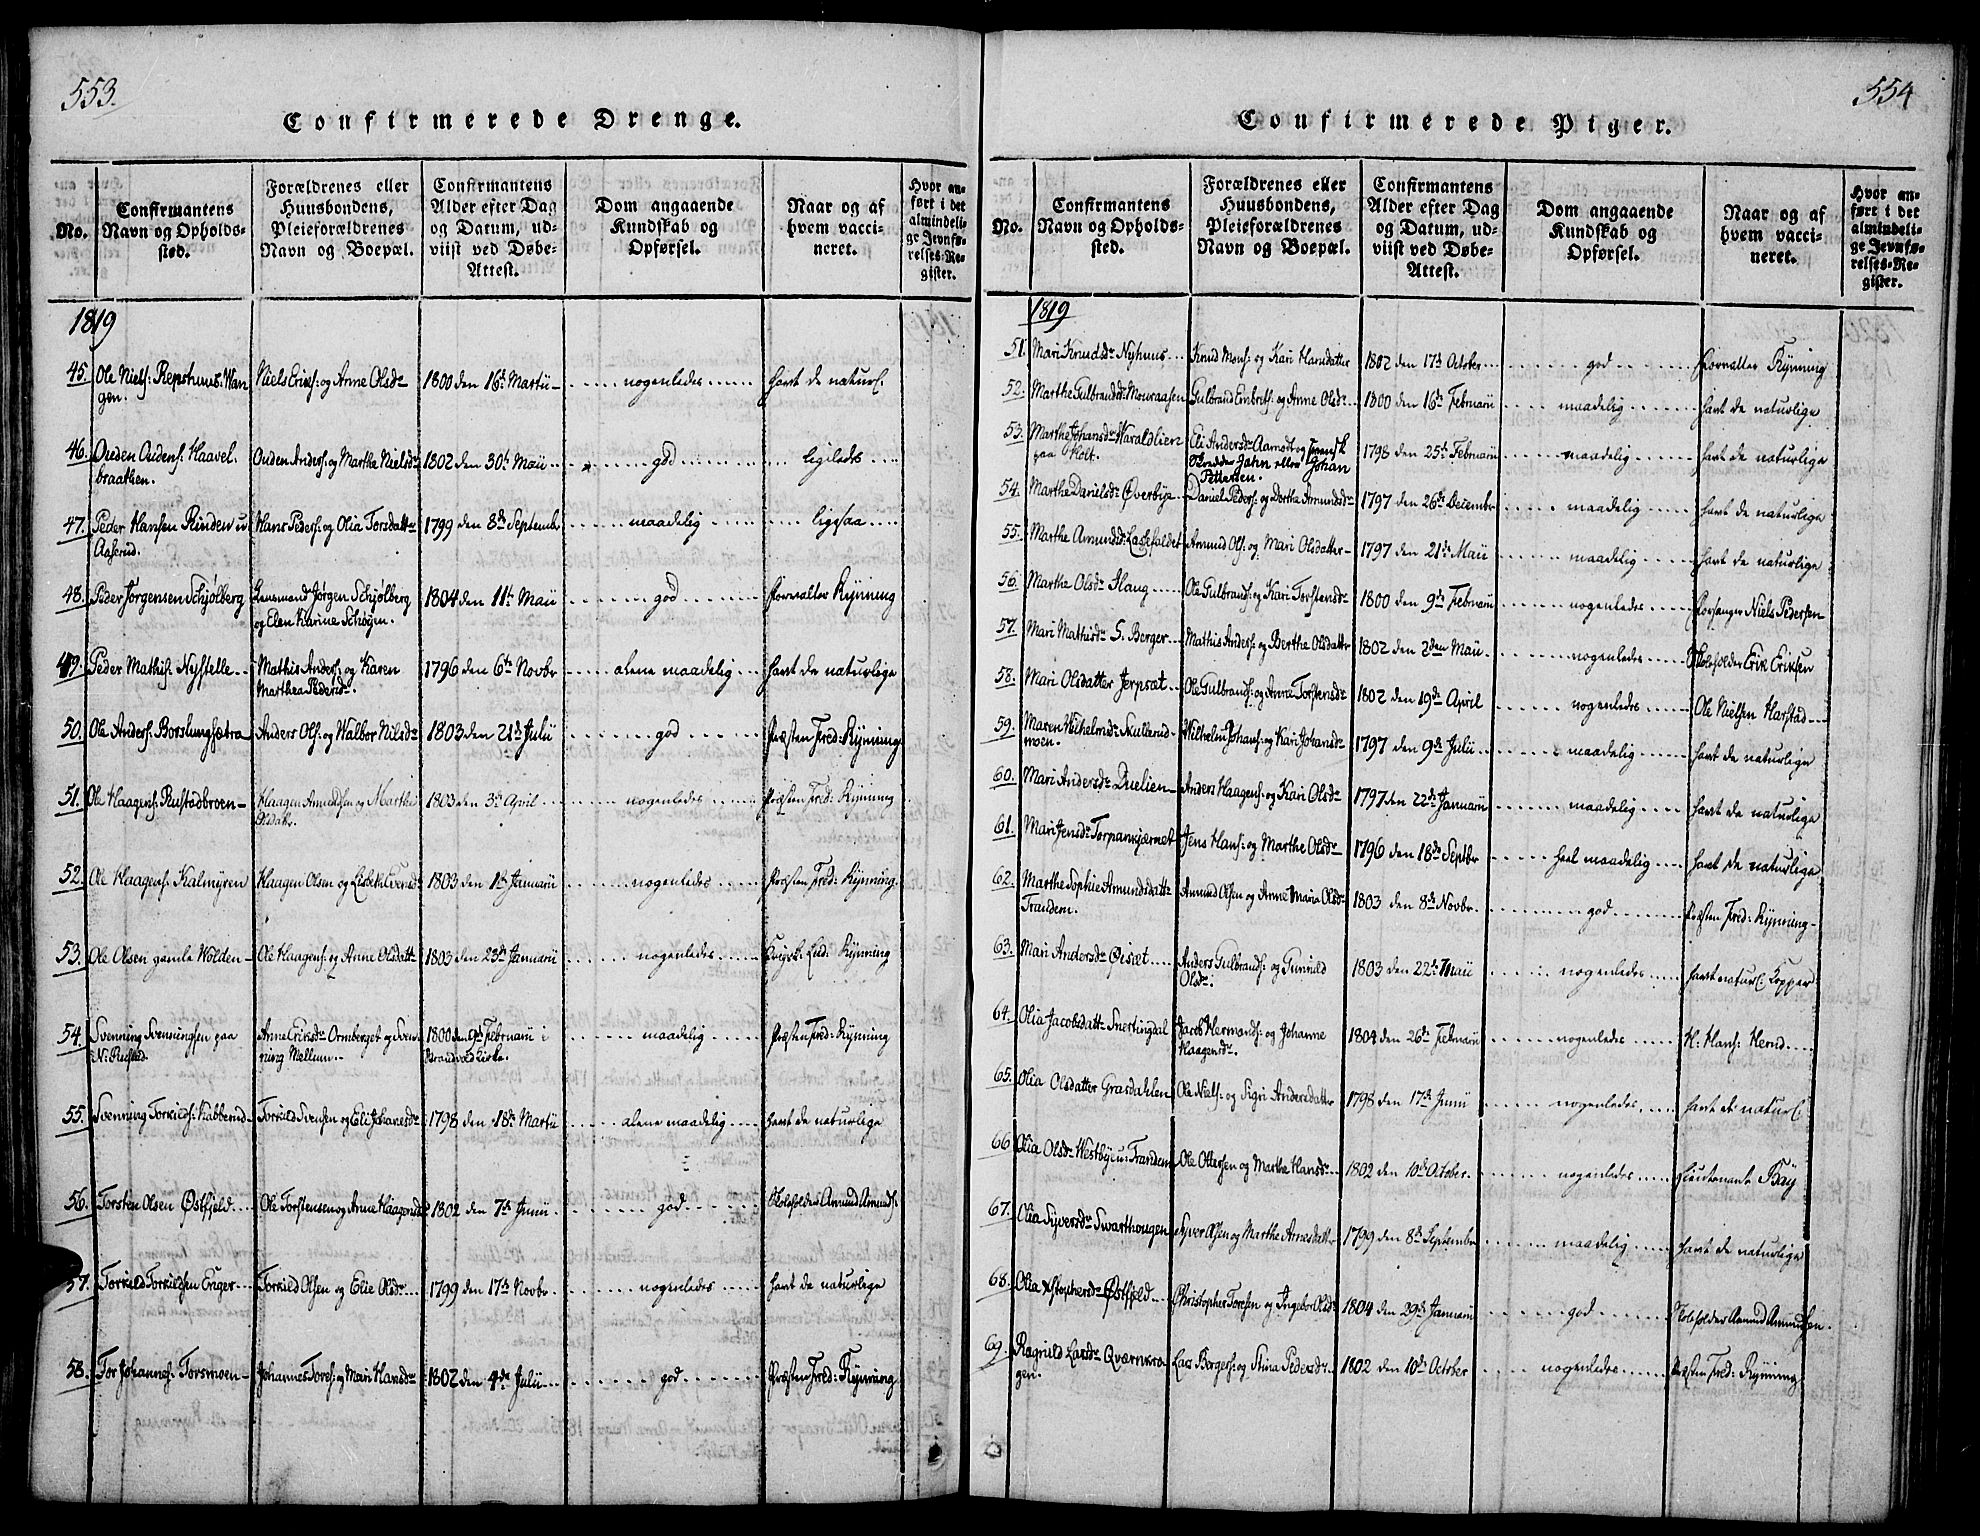 553.
Confirmerede Drenge.
No.
Confirmantens Navn og Opholdssted.
Forældrenes eller Huusbondens, Pleieforældrenes Navn og Boepæl.
Confirmantens Alder efter Dag og Datum, udviist ved Døbe-Attest.
Dom angaaende Kundskab og Opførsel.
Naar og af hvem vaccineret.
Hvor anført i det almindelige Jevnførelses-Register.
1819
45. Ole Niels: Repshuus: Wangen. Niels Eriks: og Anne Olsdr 1800 den 16de Martii nogenledes havt de naturl.
46. Ouden Oudens: Haavelbraathen. Ouden Anders: og Marthe Nielsdr 1802 den 30te Maii god ligeledes
47. Peder Hansen Rinden u: Aaserud. Hans Pedersen og Olia Torsdattr 1799 den 8de Septembr maadelig ligesaa
48. Peder Jørgensen Schjølberg Lensmand Jørgen Schjølberg og Elen Karine Schøyen. 1804 den 11te Maii god Forvalter Rynning
49. Peder Mathis: Nystelle Mathis Anders: og Karen Marthea Pedersdr 1796 den 6te Novbr alene maadelig havt de naturlige
50. Ole Anders: Borslungsætra Anders Ols: og Walbor Nilsdr 1803 den 21de Julii god Præsten Fred: Rynning
51. Ole Haagens: Rustadbroen Haagen Amundsen og Marthe Olsdatr. 1803 den 3de April nogenledes Præsten Fred: Rynning
52. Ole Haagens: Kalmyren Haagen Olsen og Lisbeth Evensdr 1803 den 1te Januarii nogenledes Præsten Fred: Rynning
53. Ole Olsen gamle Wolden Ole Haagens: og Anne Olsdattr 1803 den 23de Januarii nogenledes Lud: Rynning
54. Svenning Svenningsen paa N: Rustad. Anne Eriksdr Ornberget og Svenning Mellum. 1800 den 9de Februarii i Strandved Kirke. maadelig Præsten Fred: Rynning
55. Svenning Torkilds: Kabberud Torkild Svensen og Eli Johanesdr 1798 den 18de Martii alene maadelig havt de naturlige
56. Torsten Olsen Østfjeld Ole Torstensen og Anne Haagensdr 1802 den 7de Junii god Skoleholder Amund Amunds:
57. Torkild Torkildsen Enger Torkild Olsen og Elie Olsdr 1799 den 17de Novbr. nogenledes havt de naturlige
58. Tor Johannes: Torsmoen Johannes Tores: og Mari Hansdr 1802 den 4de Julii god Præsten Fred: Rynning
554
Confirmerede Piger.
No.
Confirmantens Navn og Opholdssted.
Forældrenes eller Huusbondens, Pleieforældrenes Navn og Boepæl.
Confirmantens Alder efter Dag og Datum, udviist ved Døbe-Attest.
Dom angaaende Kundskab og Opførsel.
Naar og af hvem vaccineret.
Hvor anført i det almindelige Jevnførelses-Register.
1819
51. Mari Knudsdr Nyhuus Knud Mons: og Kari Hansdatter 1802 den 17de October god Forvalter Rynning
52. Marthe Gulbrandsdr Mouraasen Gulbrand Embrets: og Anne Olsdr 1800 den 16de Februarii maadelig havt de naturlige
53. Marthe Johansdr Haraldlien paa Holt. Eli Andersdr Aamodt og Svensk Skrædder Jahn eller Johan Pettersen. 1798 den 25te Februarii maadelig havt de naturlige
54. Marthe Danielsdr Øverbye Daniel Peders: og Dorthe Amundsdr 1797 den 26de Decembr maadelig havt de naturlige
55. Marthe Amundsdr Laskefaldet Amund Ols: og Mari Olsdatter 1797 den 21de Maii maadelig havt de naturlige
56. Marthe Olsdr Haug Ole Gulbrands: og Kari Torstensdr 1800 den 9de Februarii nogenledes Forsanger Niels Pedersen
57. Mari Mathisdr S. Berger Mathis Anders: og Berthe Olsdattr 1802 den 2den Maii nogenledes Skoleholder Erik Eriksen
58. Mari Olsdatter Jerpsæt Ole Gulbrands: og Anne Torstensdr 1802 den 19de April nogenledes Ole Nielsen Harstad
59. Maren Wilhelmsdr Skullerudmoen. Wilhelm Johans: og Kari Johansdr 1797 den 9de Julii maadelig havt de naturlige
60. Mari Andersdr Duelien Anders Haagens: og Kari Olsdr 1797 den 22de Januarii maadelig havt de naturlige
61. Mari Jensdr Torpankjærnet Jens Hans: og Marthe Olsdr 1796 den 18de Septbr heel maadelig havt de naturlige
62. Marthe Sophie Amundsdattr Trandem. Amund Olsen og Anne Maria Olsdr 1803 den 8de Novbr. god Præsten Fred: Rynning
63. Mari Andersdr Øisæt Anders Gulbrands: og Gunnild Olsdr. 1803 den 22de Maii nogenledes havt naturl: Kopper
64. Olia Jacobsdattr Snertingdal Jacob Hermands: og Johanne Haagensdr. 1804 den 26de Februarii nogenledes H: Hans: Hernd
65. Olia Olsdatter Grasdahlen Ole Niels: og Sigri Andersdatter 1798 den 17de Junii nogenledes havt de naturl:
66 Olia Olsdr Westbye u: Trandem Ole Ottersen og Marthe Hansdr 1802 den 10de October. nogenledes Lieutenante Bay
67. Olia Syversdr Swarthougen Syver Olsen og Marthe Arnesdatter 1799 den 8de Septembr maadelig havt de naturlige
68. Olia Xstophersdr Østfjeld Christopher Toresen og Ingebor Olsdr 1804 den 29de Januarii god Skoleholder Amund Amundsen
69. Ragnild Larsdr Qværnkroagen. Lars Bergers: og Stina Pedersdr. 1802 den 10de October nogenledes Præsten Fred: Rynning